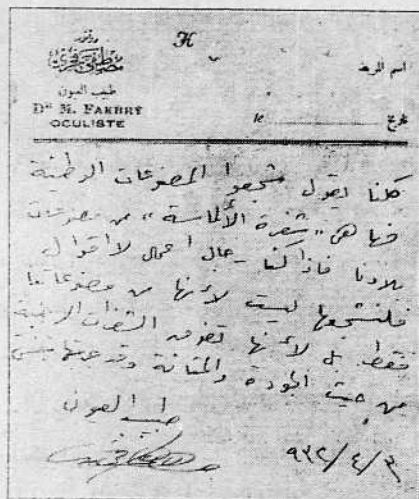 دكتور
مصطفى فخري
طبيب العيون
Dr M. FAKHRY
OCULISTE
اسم المريض
le
تاريخ
كلنا يقول شجعوا المصنوعات الوطنية
فها هى «شفرة الألماسة» من مصنوعات
بلادنا فاذا كنا رجال اعمال لا اقوال
فلنشجعها ليست لأنها من مصنوعاتنا
فقط بل لأنها تفوق الشفرات الاجنبية
من حيث الجودة والمتانة وقد جربتها بنفسي
طبيب العيون
٩٣٢/٤/٣